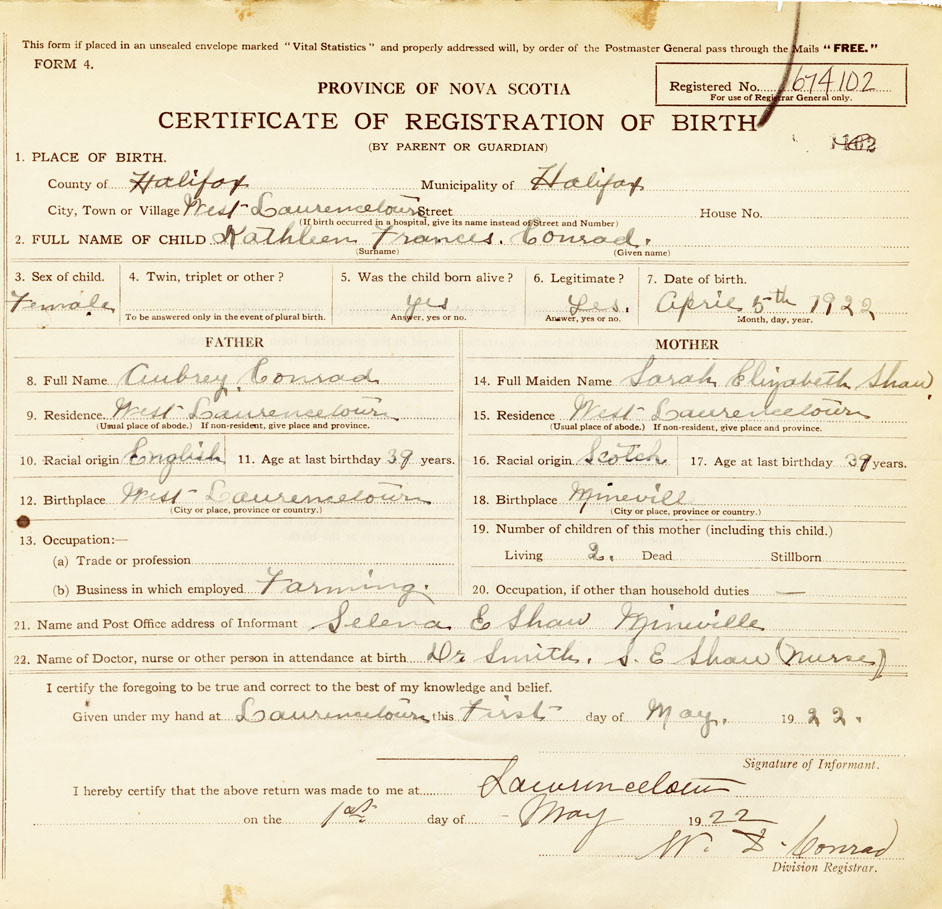 This form if placed in an unsealed envelope marked "Vital Statistics" and properly addressed will, by order of the Postmaster General pass through the Mails "FREE."
FORM 4.
Registered No. 674102
For use of Registrar General only.
PROVINCE OF NOVA SCOTIA
CERTIFICATE OF REGISTRATION OF BIRTH
(BY PARENT OR GUARDIAN)
1. PLACE OF BIRTH.
County of Halifax Municipality of Halifax
City, Town or Village West Laurencetown Street House No.
(If birth occurred in a hospital, give its name instead of Street and Number)
2. FULL NAME OF CHILD Kathleen Frances. Conrad.
(Surname) (Given name)
3. Sex of child. 4. Twin, triplet or other? 5. Was the child born alive? 6. Legitimate? 7. Date of birth.
Female yes yes. April 5th 1922
To be answered only in the event of plural birth. Answer, yes or no. Answer, yes or no. Month, day, year.
FATHER
8. Full Name Aubrey Conrad
9. Residence. West Laurencetown
(Usual place of abode.) If non-resident, give place and province.
10. Racial origin English 11. Age at last birthday 39 years.
12. Birthplace West Laurencetown
(City or place, province or country.)
13. Occupation:—
(a) Trade or profession
(b) Business in which employed Farming.
MOTHER
14. Full Maiden Name Sarah Elizabeth Shaw
15. Residence West Laurencetown
(Usual place of abode.) If non-resident, give place and province.
16. Racial origin Scotch 17. Age at last birthday 39 years.
18. Birthplace Minevill
(City or place, province or country.)
19. Number of children of this mother (including this child.)
Living 2. Dead Stillborn
20. Occupation, if other than household duties —
21. Name and Post Office address of Informant Selena E Shaw Mineville
22. Name of Doctor, nurse or other person in attendance at birth Dr Smith. S. E Shaw (Nurse)
I certify the foregoing to be true and correct to the best of my knowledge and belief.
Given under my hand at Laurencetown this First day of May. 1922.
Signature of Informant.
I hereby certify that the above return was made to me at Lawrencetown
on the 1st day of May 1922
W. D. Conrad
Division Registrar.